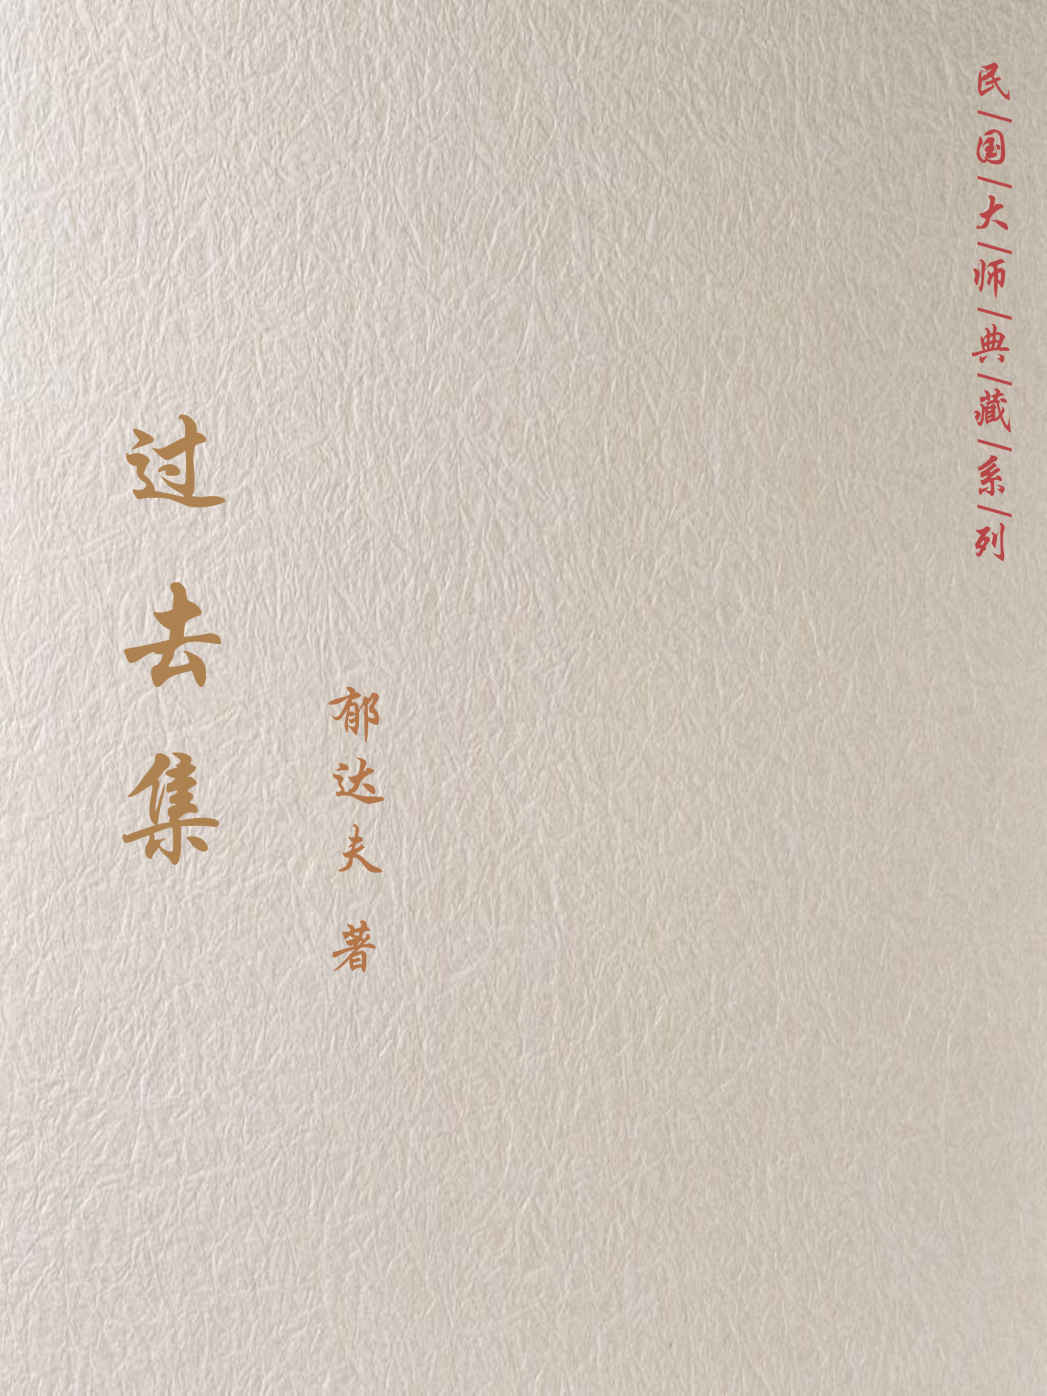 民/国/大/师/典/藏/系/列
过去集
郁达夫 著